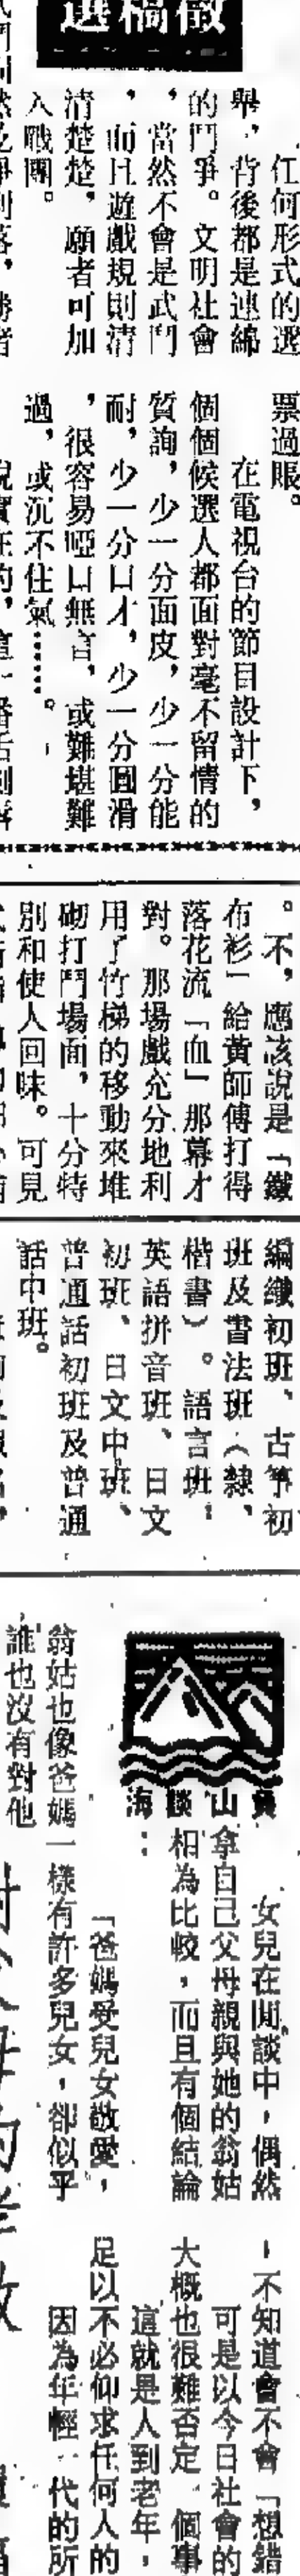 選稿徵
任何形式的選
舉,背後都是連綿
的鬥爭。文明社會
,當然不會是武鬥
,而且遊戲規則清
清楚楚,願者可加
入戰團。
票過賬。
在電視台的節目設計下,
個個候選人都面對毫不留情的
質詢,少一分面皮,少一分能
耐,少一分口才,少一分圓滑
,很容易啞口無言,或難堪難
過,或沉不住氣……。
。不,應該說是「鐵
布衫」給黃師傅打得
落花流「血」那幕才
對。那場戲充分地利
用了竹梯的移動來堆
砌打鬥場面,十分特
別和使人回味。可見
編織初班、古箏初
班及書法班(隸、
楷書)。語言班:
英語拼音班、日文
初班、日文中班、
普通話初班及普通
話中班。
山
談
海
女兒在閒談中,偶然
拿自己父母親與她的翁姑
相為比較,而且有個結論
:
「爸媽受兒女敬愛,
翁姑也像爸媽一樣有許多兒女,卻似乎
誰也沒有對他
不知道會不會「想錯
可是以今日社會的
大概也很難否定一個事
這就是人到老年,
足以不必仰求任何人的
因為年輕一代的所